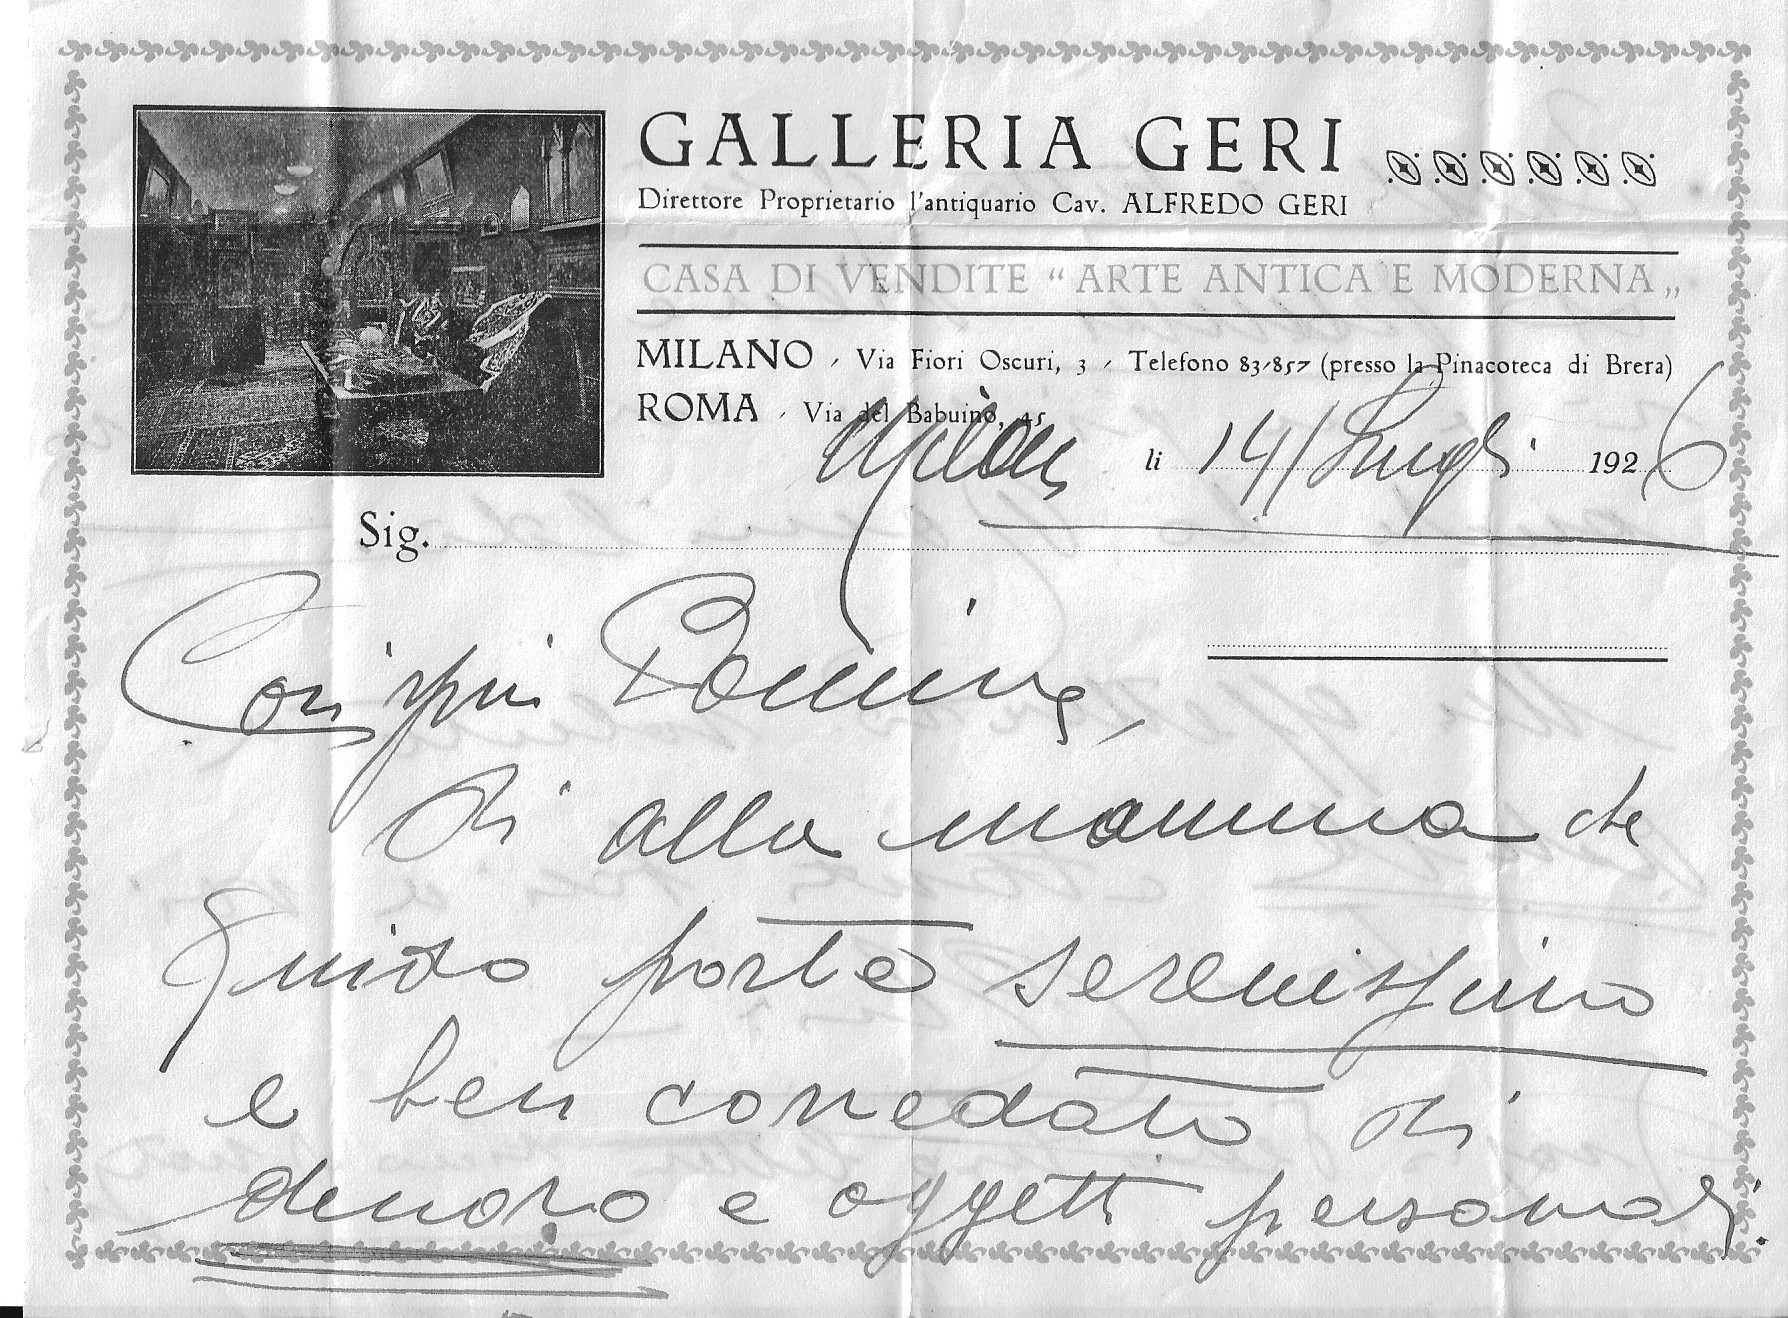 GALLERIA GERI
Direttore Proprietario l'antiquario Cav. ALFREDO GERI
CASA DI VENDITE “ ARTE ANTICA E MODERNA „
MILANO - Via Fiori Oscuri, 3 - Telefono 83-857 (presso la Pinacoteca di Brera)
ROMA - Via del Babuino, 45
Milano li 14/Luglio 1926
Sig.
di alla mamma che
Guido partè serenissimo
e ben corredato di
denaro e oggetti personali.